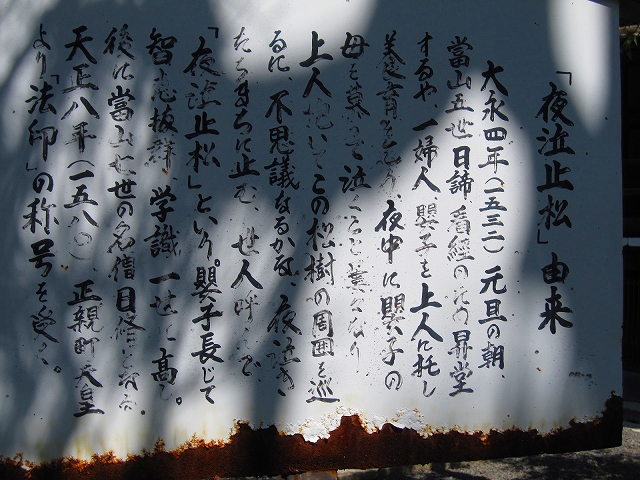 「夜泣止松」由来
大永四年(一五三二)元旦の朝、
當山五世日諦、看經のため昇堂
するや、一婦人、嬰子を上人に托し
養育を乞う、夜中に嬰子の
母を慕って泣くこと
上人抱いてこの松樹の周囲を巡
るに、不思議なるかな、夜泣き
たちまちに止む、世人呼んで
「夜泣止松」という。嬰子長じて
智も抜群、学識一世に高し。
後に當山七世の名僧日修
天正八年(一五八〇)、正親町天皇
より「法印」の称号を